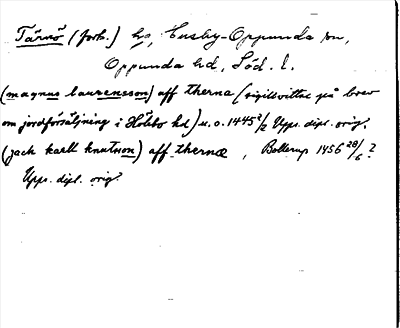 Tärnö (forts.) hg, Husby-Oppunda sn,
Oppunda hd, Söd. l.
(magnus laurensson) aff therna (sigillvittne på brev
om jordförsäljning i Hölebo hd) u.o. 1445 2/2 Upps. dipl. orig.
(jack karll knutson) aff thernæ, Bollerup 1456 28/6?
Upps. dipl. orig.